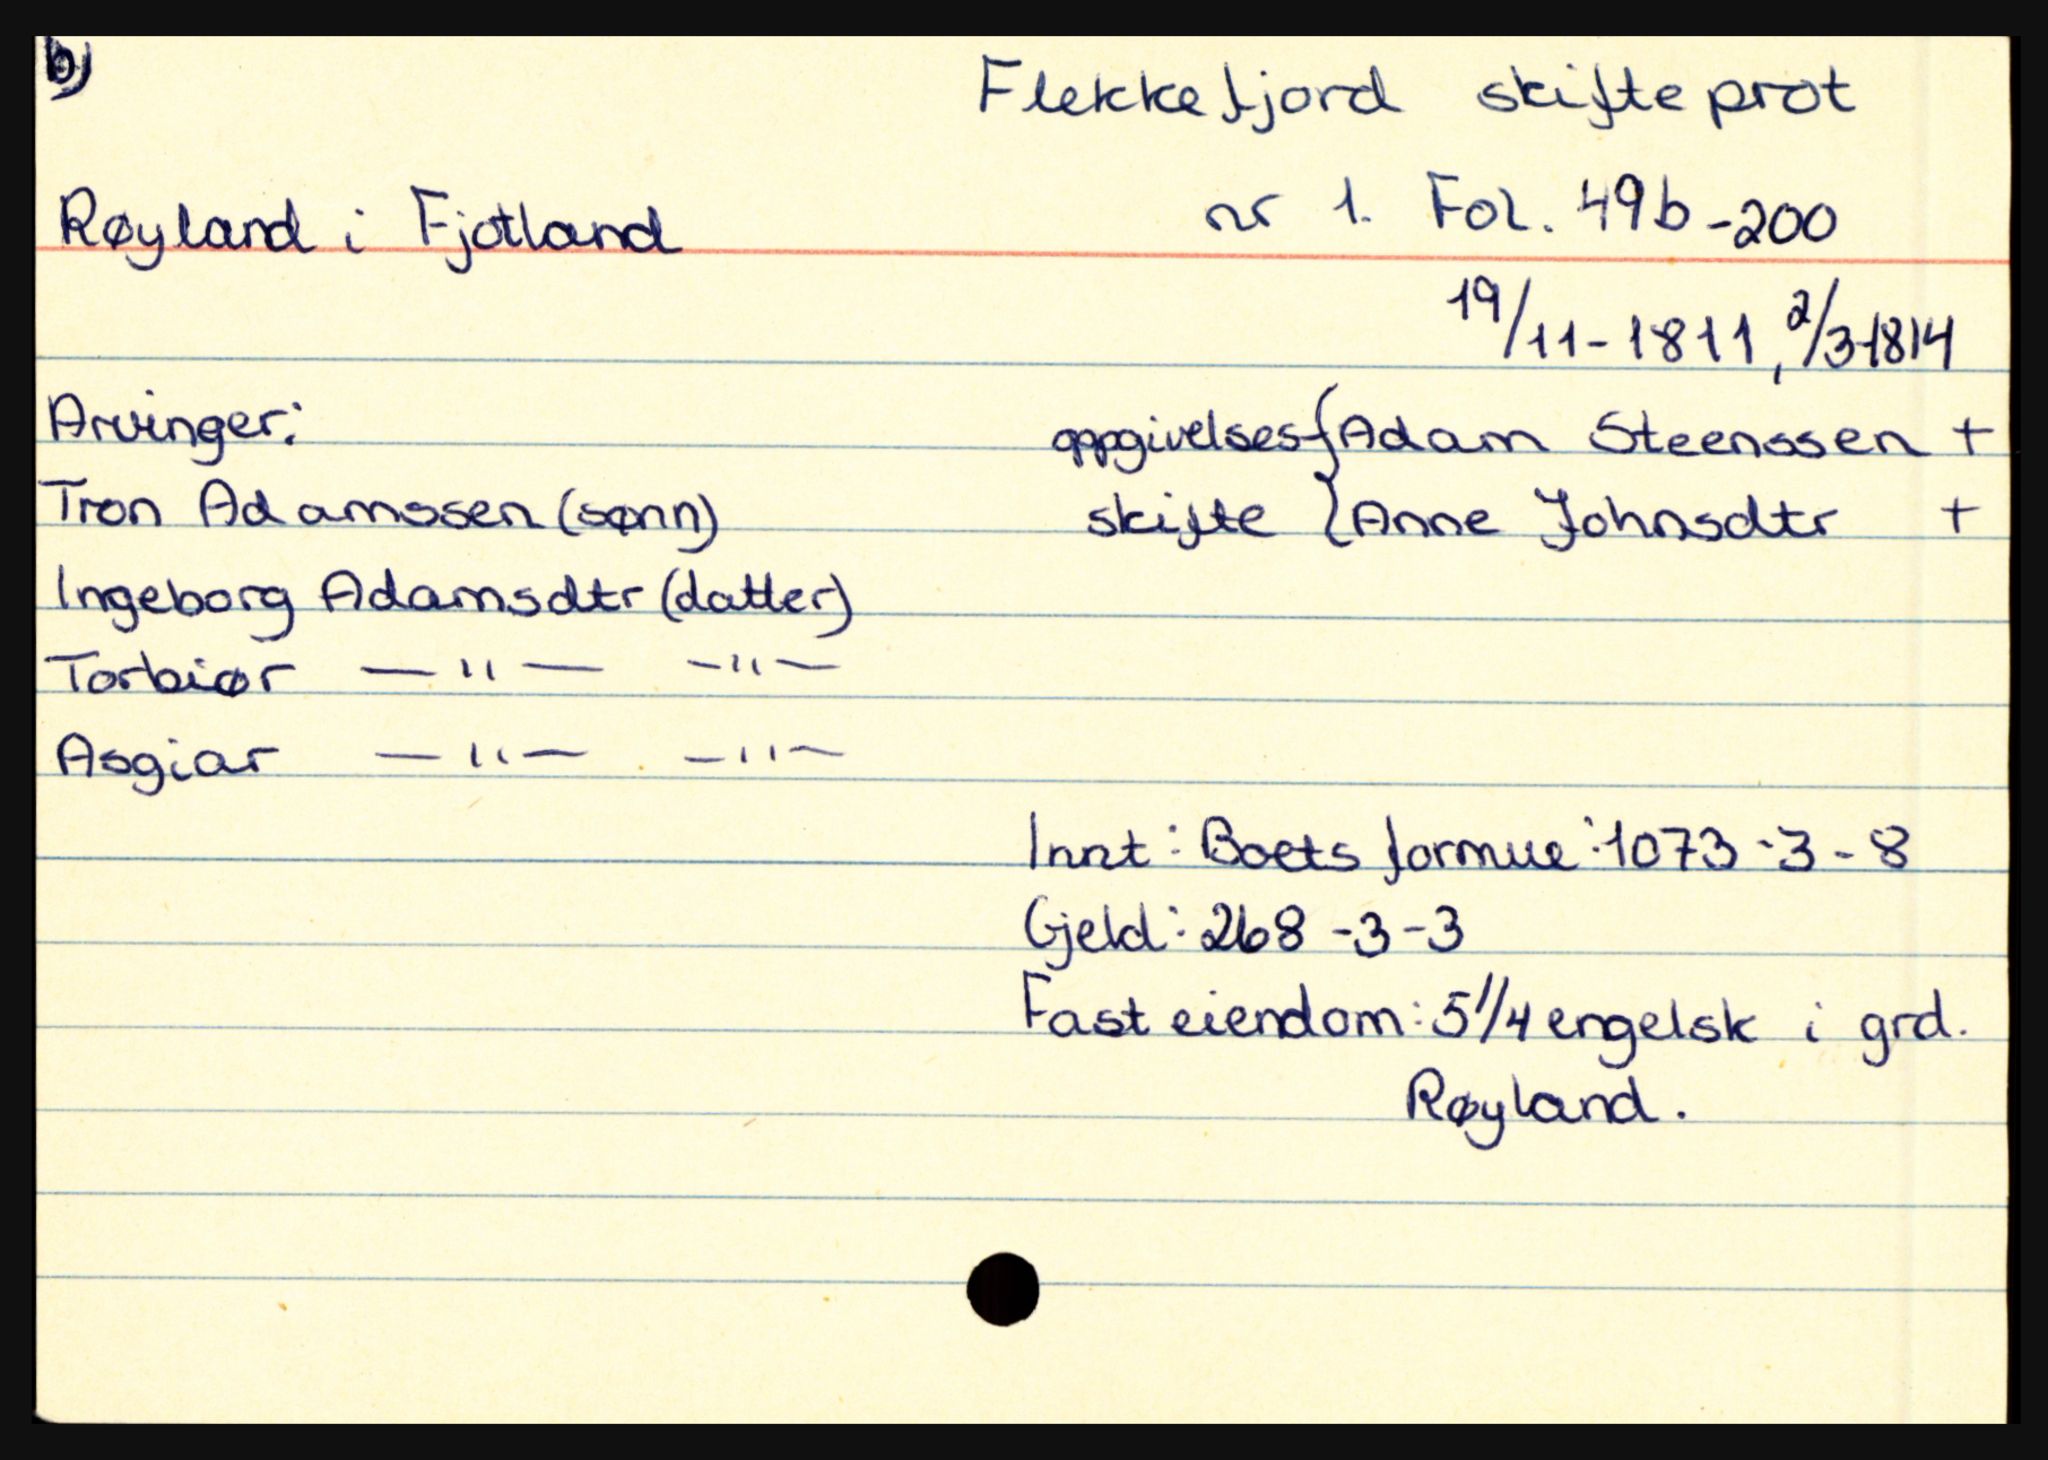 b)
Flekkefjord skifteprot
Røyland i Fjotland
nr 1. Fol. 49b-200
19/11-1811, 2/3-1814
Arvinger:
oppgivelses-{Adam Steenssen +
Tron Adamssen (sønn)
skifte }Anne Johnsdtr +
Ingeborg Adamsdtr (datter)
Torbiør —"— —"—
Asgiar —"— —"—
Innt: Boets formue: 1073-3-8
Gjeld: 268-3-3
Fast eiendom: 5 1/4 engelsk i grd.
Røyland.